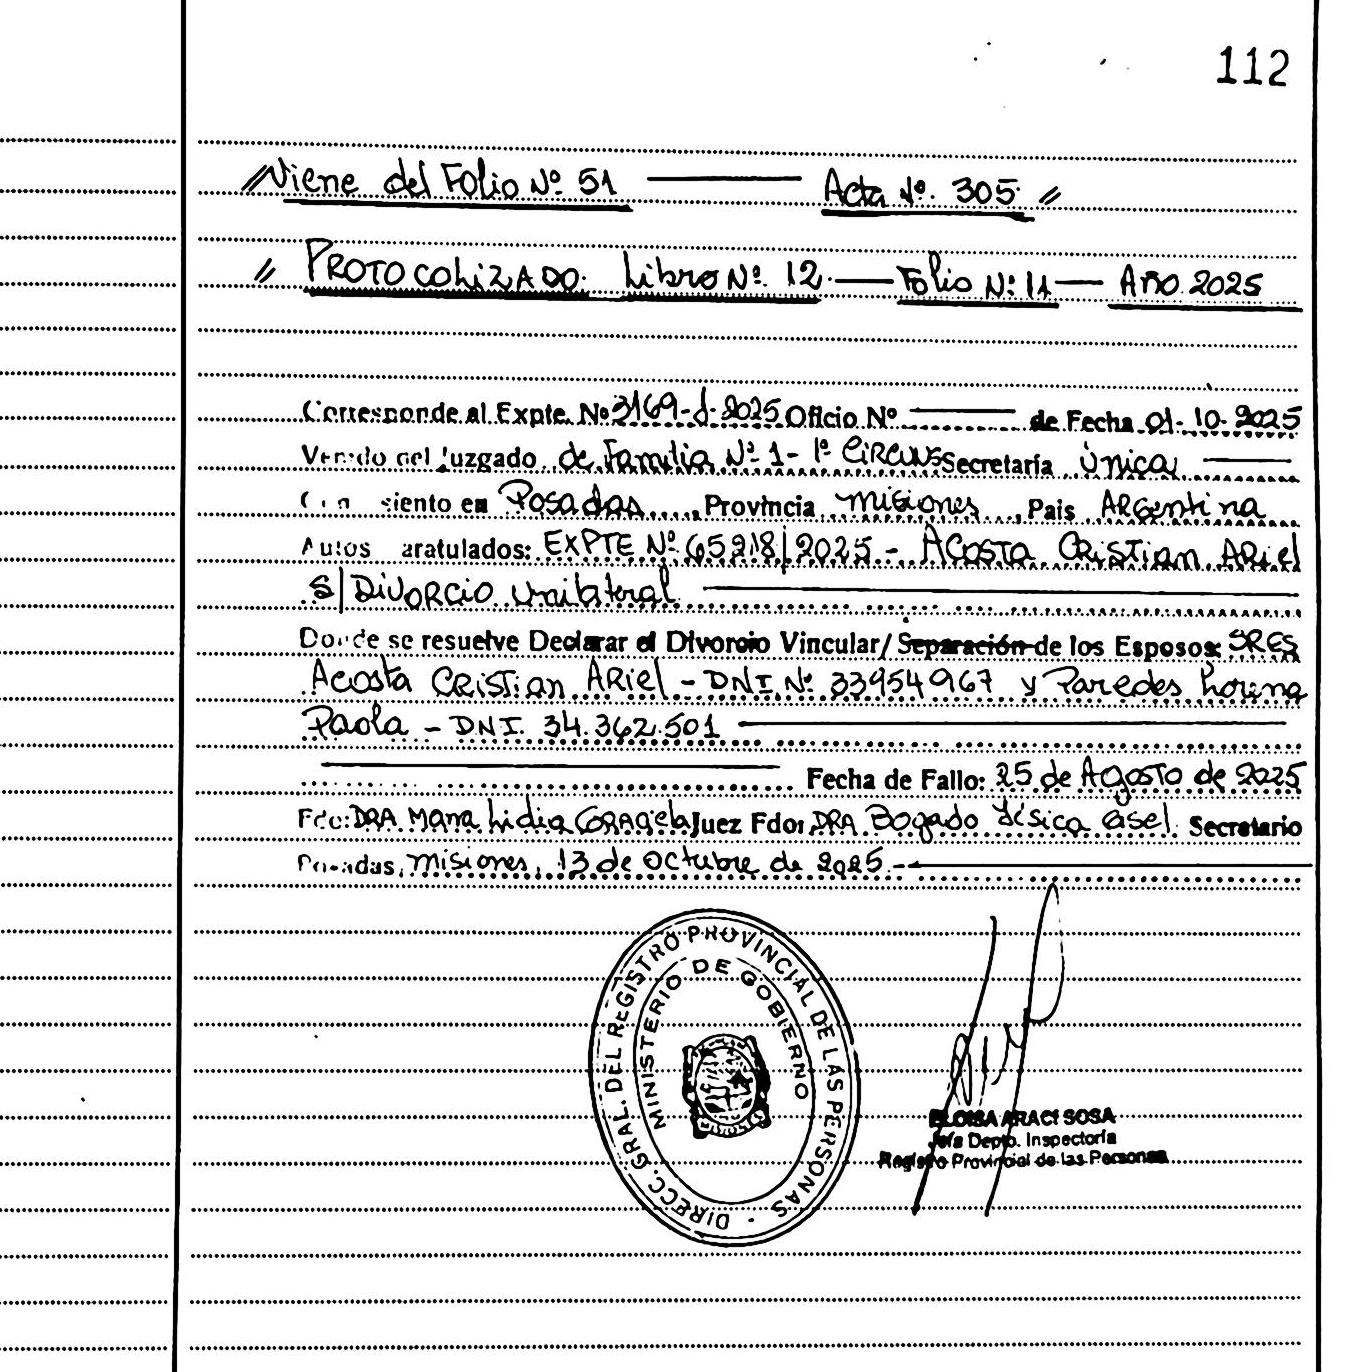 112
// Viene del Folio Nº 51 ——— Acta Nº. 305 //
// PROTOCOLIZADO. Libro Nº. 12 — Folio Nº. 11 — Año 2025
Corresponde al Expte. Nº 3169-J-2025 Oficio Nº ——— de Fecha 01-10-2025
Venido del Juzgado de Familia Nº 1 - 1º CIRCUNS Secretaría Única ———
Con asiento en Posadas, Provincia Misiones, Pais ARGentina
Autos caratulados: EXPTE Nº. 65218/2025 - ACOSTA CRISTIAN ARiel
S/ DIVORCIO Unilateral ———
Donde se resuelve Declarar el Divorcio Vincular/ Separación de los Esposos: SRES
Acosta CRISTian ARiel - DNI. Nº. 33954967 y Paredes Lorena
Paola - DNI. 34.362.501 ———
——— Fecha de Fallo: 25 de Agosto de 2025
Fdo: DRA. Maria Lidia Juez Fdo: DRA Bogado Secretario
Posadas, Misiones, 13 de Octubre de 2025 - ———
DIRECC. GRAL. DEL REGISTRO PROVINCIAL DE LAS PERSONAS
MINISTERIO DE GOBIERNO
ELOISA ARACI SOSA
Jefa Depto. Inspectoría
Registro Provincial de las Personas